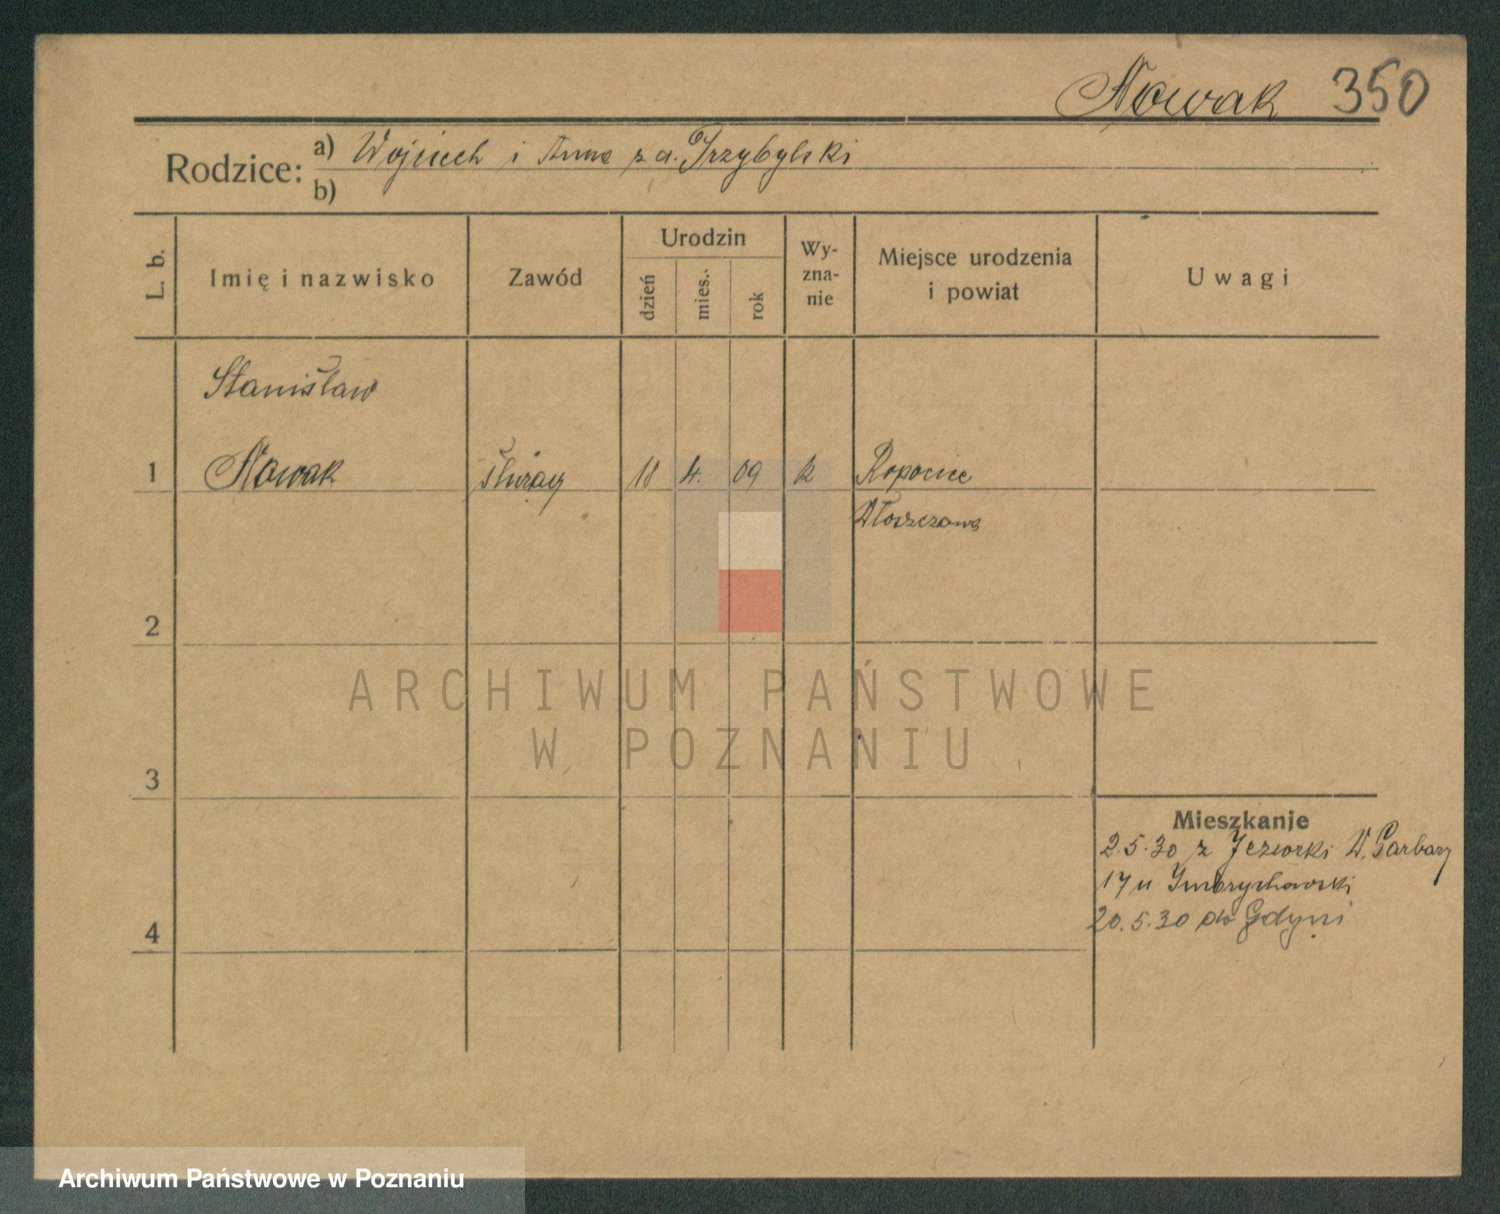 Nowak 350
Rodzice: a) Wojciech i Anna z d. Przybylski
b)
L. b.
Imię i nazwisko
Zawód
Urodzin
dzień
mies.
rok
Wy-
zna-
nie
Miejsce urodzenia
i powiat
Uwagi
Stanisław
1 Nowak służący 18 4. 09 k Ropocice
Włoszczowa
2
ARCHIWUM PAŃSTWOWE
W POZNANIU
3
Mieszkanie
2.5.30 z Jeziorki W. Garbary
17 u
4
20.5.30 do Gdyni
Archiwum Państwowe w Poznaniu